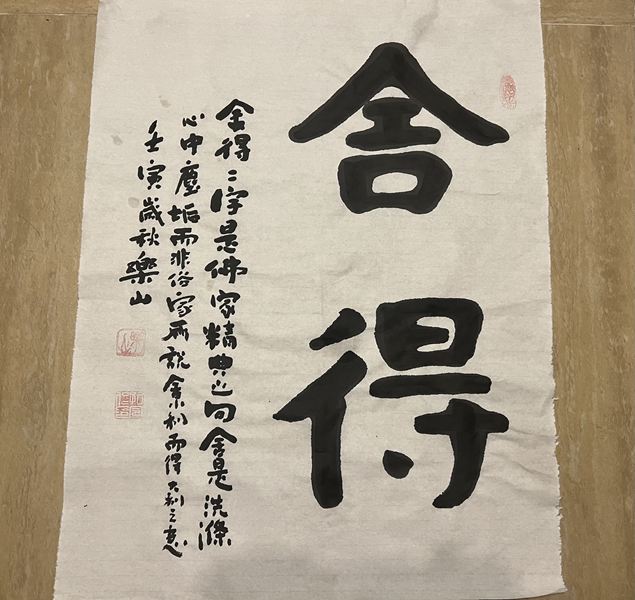 舍得
舍得二字是佛家精典之句舍是洗滌
心中塵垢而非俗家所說舍小利而得大利之意
壬寅歲秋樂山